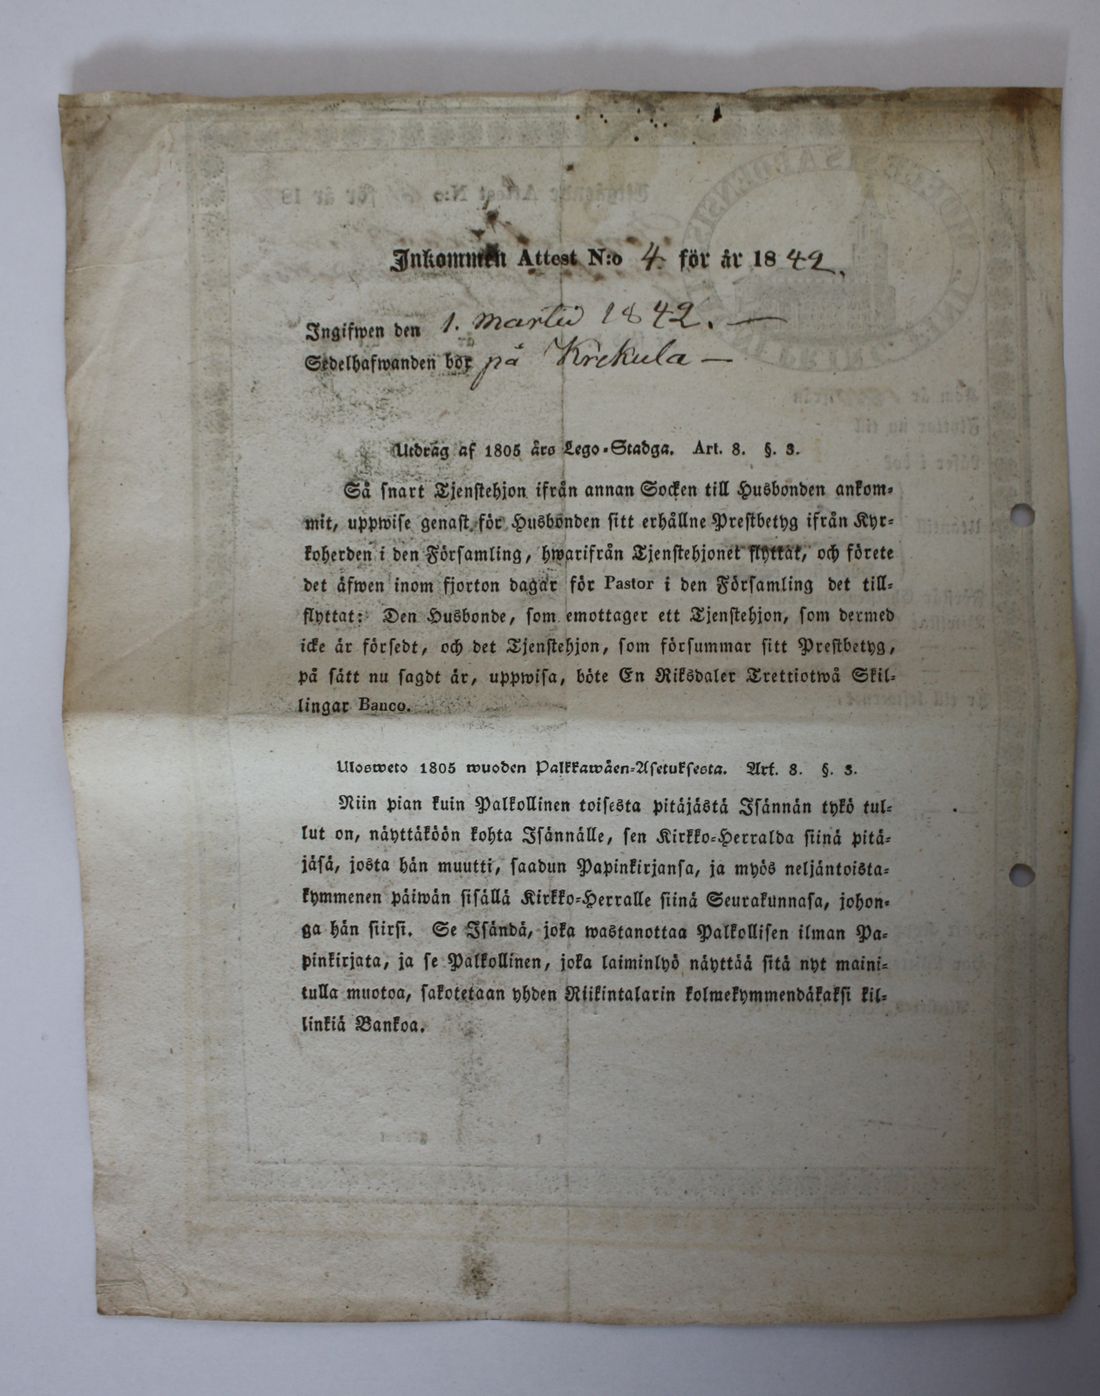 Inkommen Attest N:o 4 för år 1842.
Ingifwen den 1. Martii 1842. —
Sedelhafwanden bor på Krekula —
Utdrag af 1805 års Lego-Stadga. Art. 8. §. 3.
Så snart Tjenstehjon ifrån annan Socken till Husbonden ankom-
mit, uppwise genast för Husbonden sitt erhållne Prestbetyg ifrån Kyr-
koherden i den Församling, hwarifrån Tjenstehjonet flyttat, och förete
det äfwen inom fjorton dagar för Pastor i den Församling det till-
flyttat: Den Husbonde, som emottager ett Tjenstehjon, som dermed
icke är försedt, och det Tjenstehjon, som försummar sitt Prestbetyg,
på sätt nu sagdt är, uppwisa, böte En Riksdaler Trettiotwå Skil-
lingar Banco.
Ulosweto 1805 wuoden Palkkawäen-Asetuksesta. Art. 8. §. 3.
Niin pian kuin Palkollinen toisesta pitäjästä Isännän tykö tul-
lut on, näyttäköön kohta Isännälle, sen Kirkko-Herralda siinä pitä-
jäsä, josta hän muutti, saadun Papinkirjansa, ja myös neljäntoista-
kymmenen päiwän sisällä Kirkko-Herralle siinä Seurakunnasa, johon-
ga hän siirsi. Se Isändä, joka wastanottaa Palkollisen ilman Pa-
pinkirjata, ja se Palkollinen, joka laiminlyö näyttää sitä nyt maini-
tulla muotoa, sakotetaan yhden Riikintalarin kolmekymmendäkaksi kil-
linkiä Bankoa.